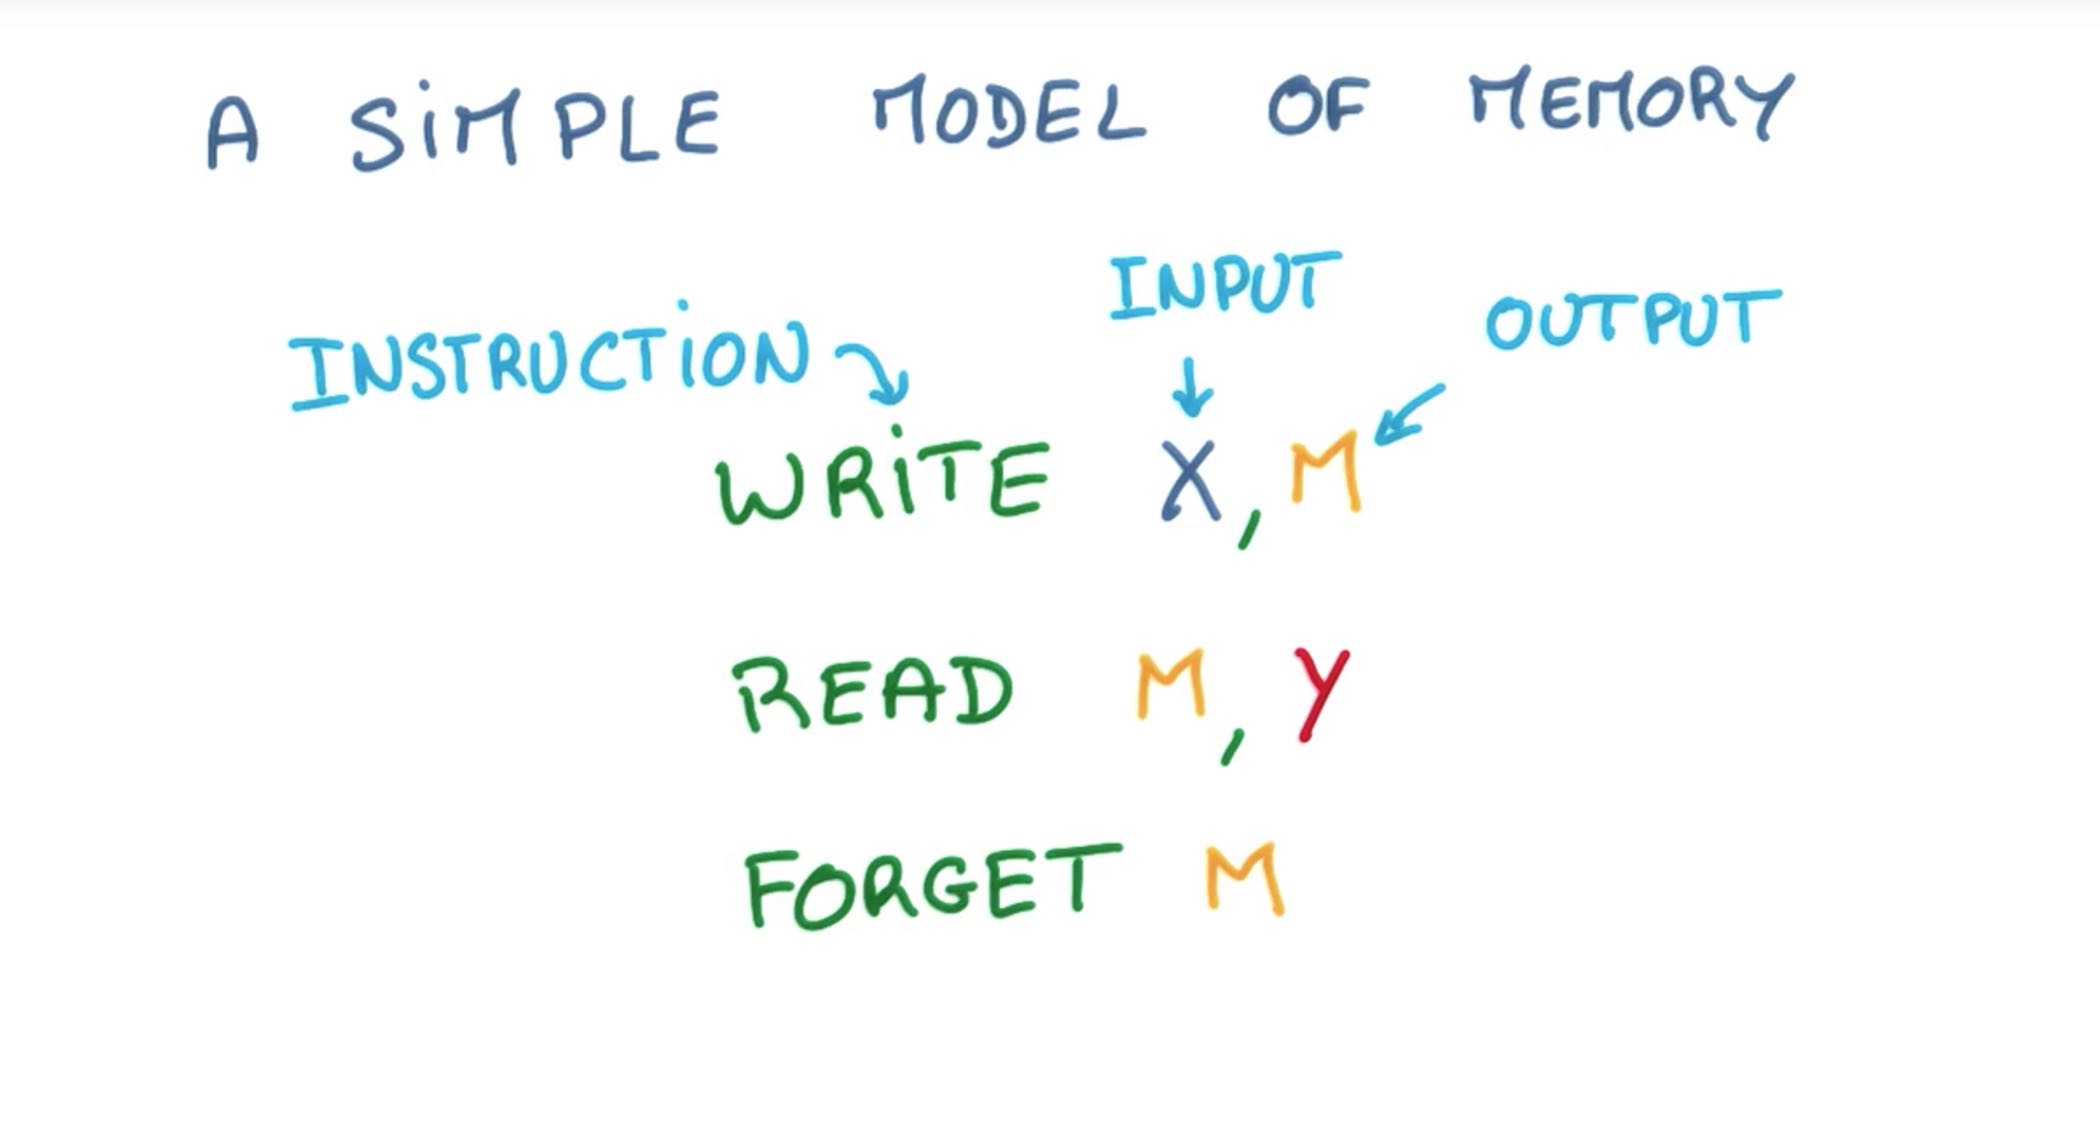 A SiMPLE MODEL OF MEMORY
INPUT
OUTPUT
INSTRUCTiON
WRiTE X, M
READ M, Y
FORGET M